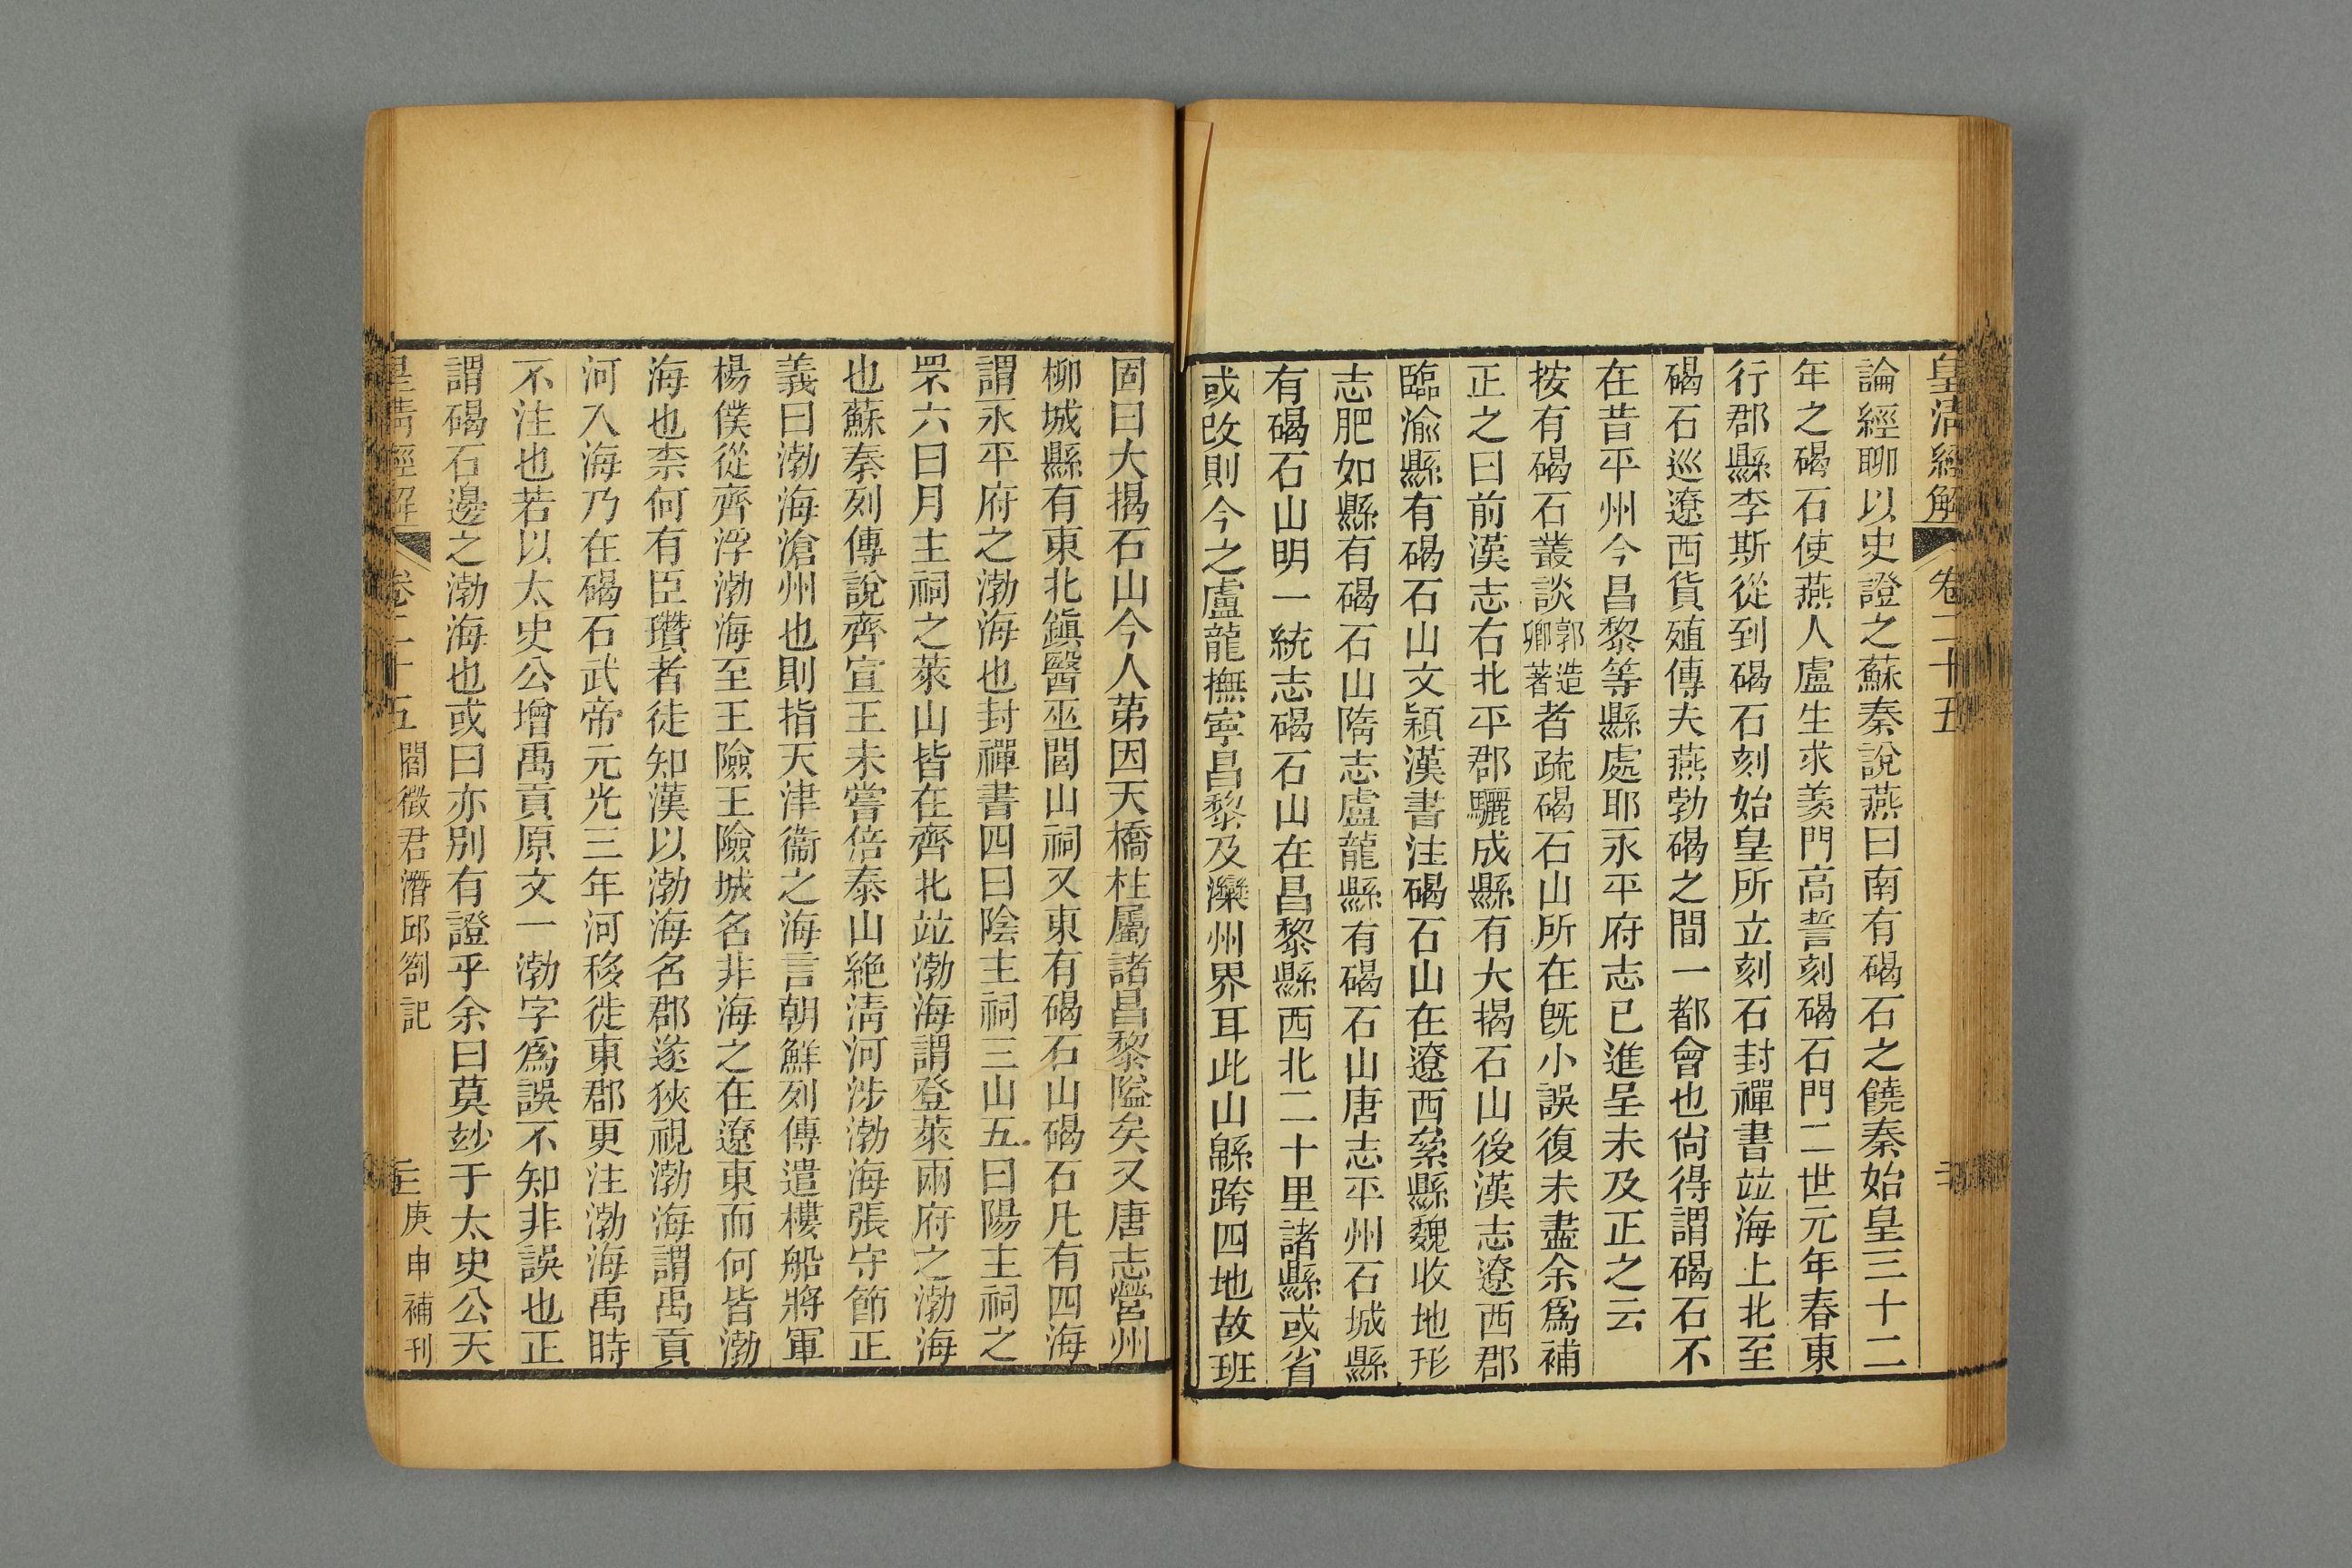 皇清經解 卷二十五
論經聊以史證之蘇秦說燕曰南有碣石之饒秦始皇三十二
年之碣石使燕人盧生求羨門高誓刻碣石門二世元年春東
行郡縣李斯從到碣石刻始皇所立刻石封禪書竝海上北至
碣石巡遼西貨殖傳夫燕勃碣之間一都會也尙得謂碣石不
在昔平州今昌黎等縣處耶永平府志已進呈未及正之云
按有碣石叢談郭造卿著者疏碣石山所在旣小誤復未盡余爲補
正之曰前漢志右北平郡驪成縣有大揭石山後漢志遼西郡
臨渝縣有碣石山文穎漢書注碣石山在遼西絫縣魏收地形
志肥如縣有碣石山隋志盧龍縣有碣石山唐志平州石城縣
有碣石山明一統志碣石山在昌黎縣西北二十里諸縣或省
或改則今之盧龍撫寧昌黎及灤州界耳此山緜跨四地故班
固曰大揭石山今人第因天橋柱屬諸昌黎隘矣又唐志營州
柳城縣有東北鎭醫巫閭山祠又東有碣石山碣石凡有四海
謂永平府之渤海也封禪書四曰陰主祠三山五曰陽主祠之
罘六曰月主祠之萊山皆在齊北竝渤海謂登萊兩府之渤海
也蘇秦列傳說齊宣王未嘗倍泰山絶淸河涉渤海張守節正
義曰渤海滄州也則指天津衞之海言朝鮮列傳遣樓船將軍
楊僕從齊浮渤海至王險王險城名非海之在遼東而何皆渤
海也柰何有臣瓚者徒知漢以渤海名郡遂狹視渤海謂禹貢
河入海乃在碣石武帝元光三年河移徙東郡更注渤海禹時
不注也若以太史公增禹貢原文一渤字爲誤不知非誤也正
謂碣石邊之渤海也或曰亦別有證乎余曰莫玅于太史公天
皇清經解 卷二十五 閻徵君潛邱劄記 庚申補刊